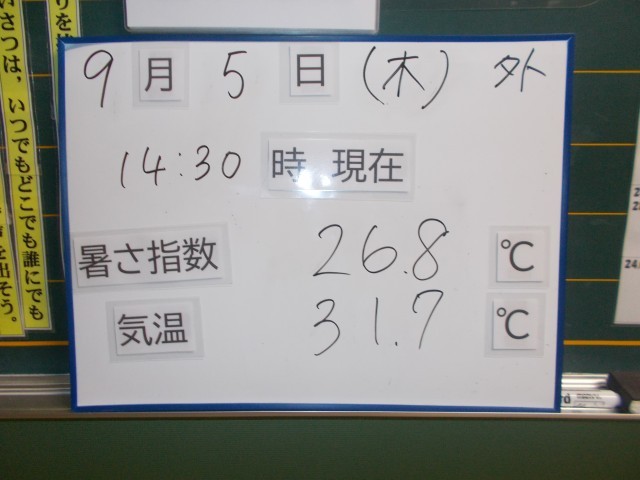 9月5日(木) 外
14:30時 現在
暑さ指数 26.8 ℃
気温 31.7 ℃
さつは、いつでもどこでも誰にでも
を出そう。